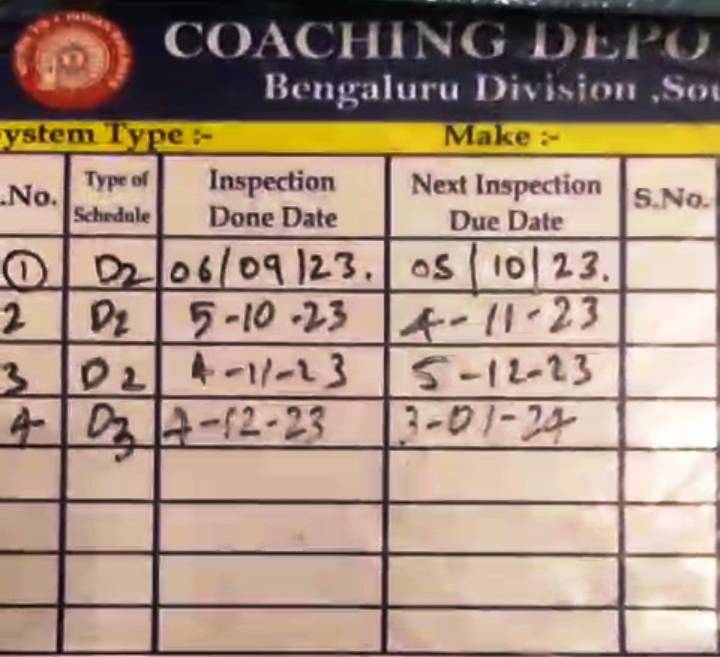 COACHING DEPO
Bengaluru Division ,Sou
ystem Type :- Make :-
.No. Type of Schedule Inspection Done Date Next Inspection Due Date S.No.
1 D2 06/09/23. 05/10/23.
2 D2 5-10-23 4-11-23
3 D2 4-11-23 5-12-23
4 D3 4-12-23 3-01-24